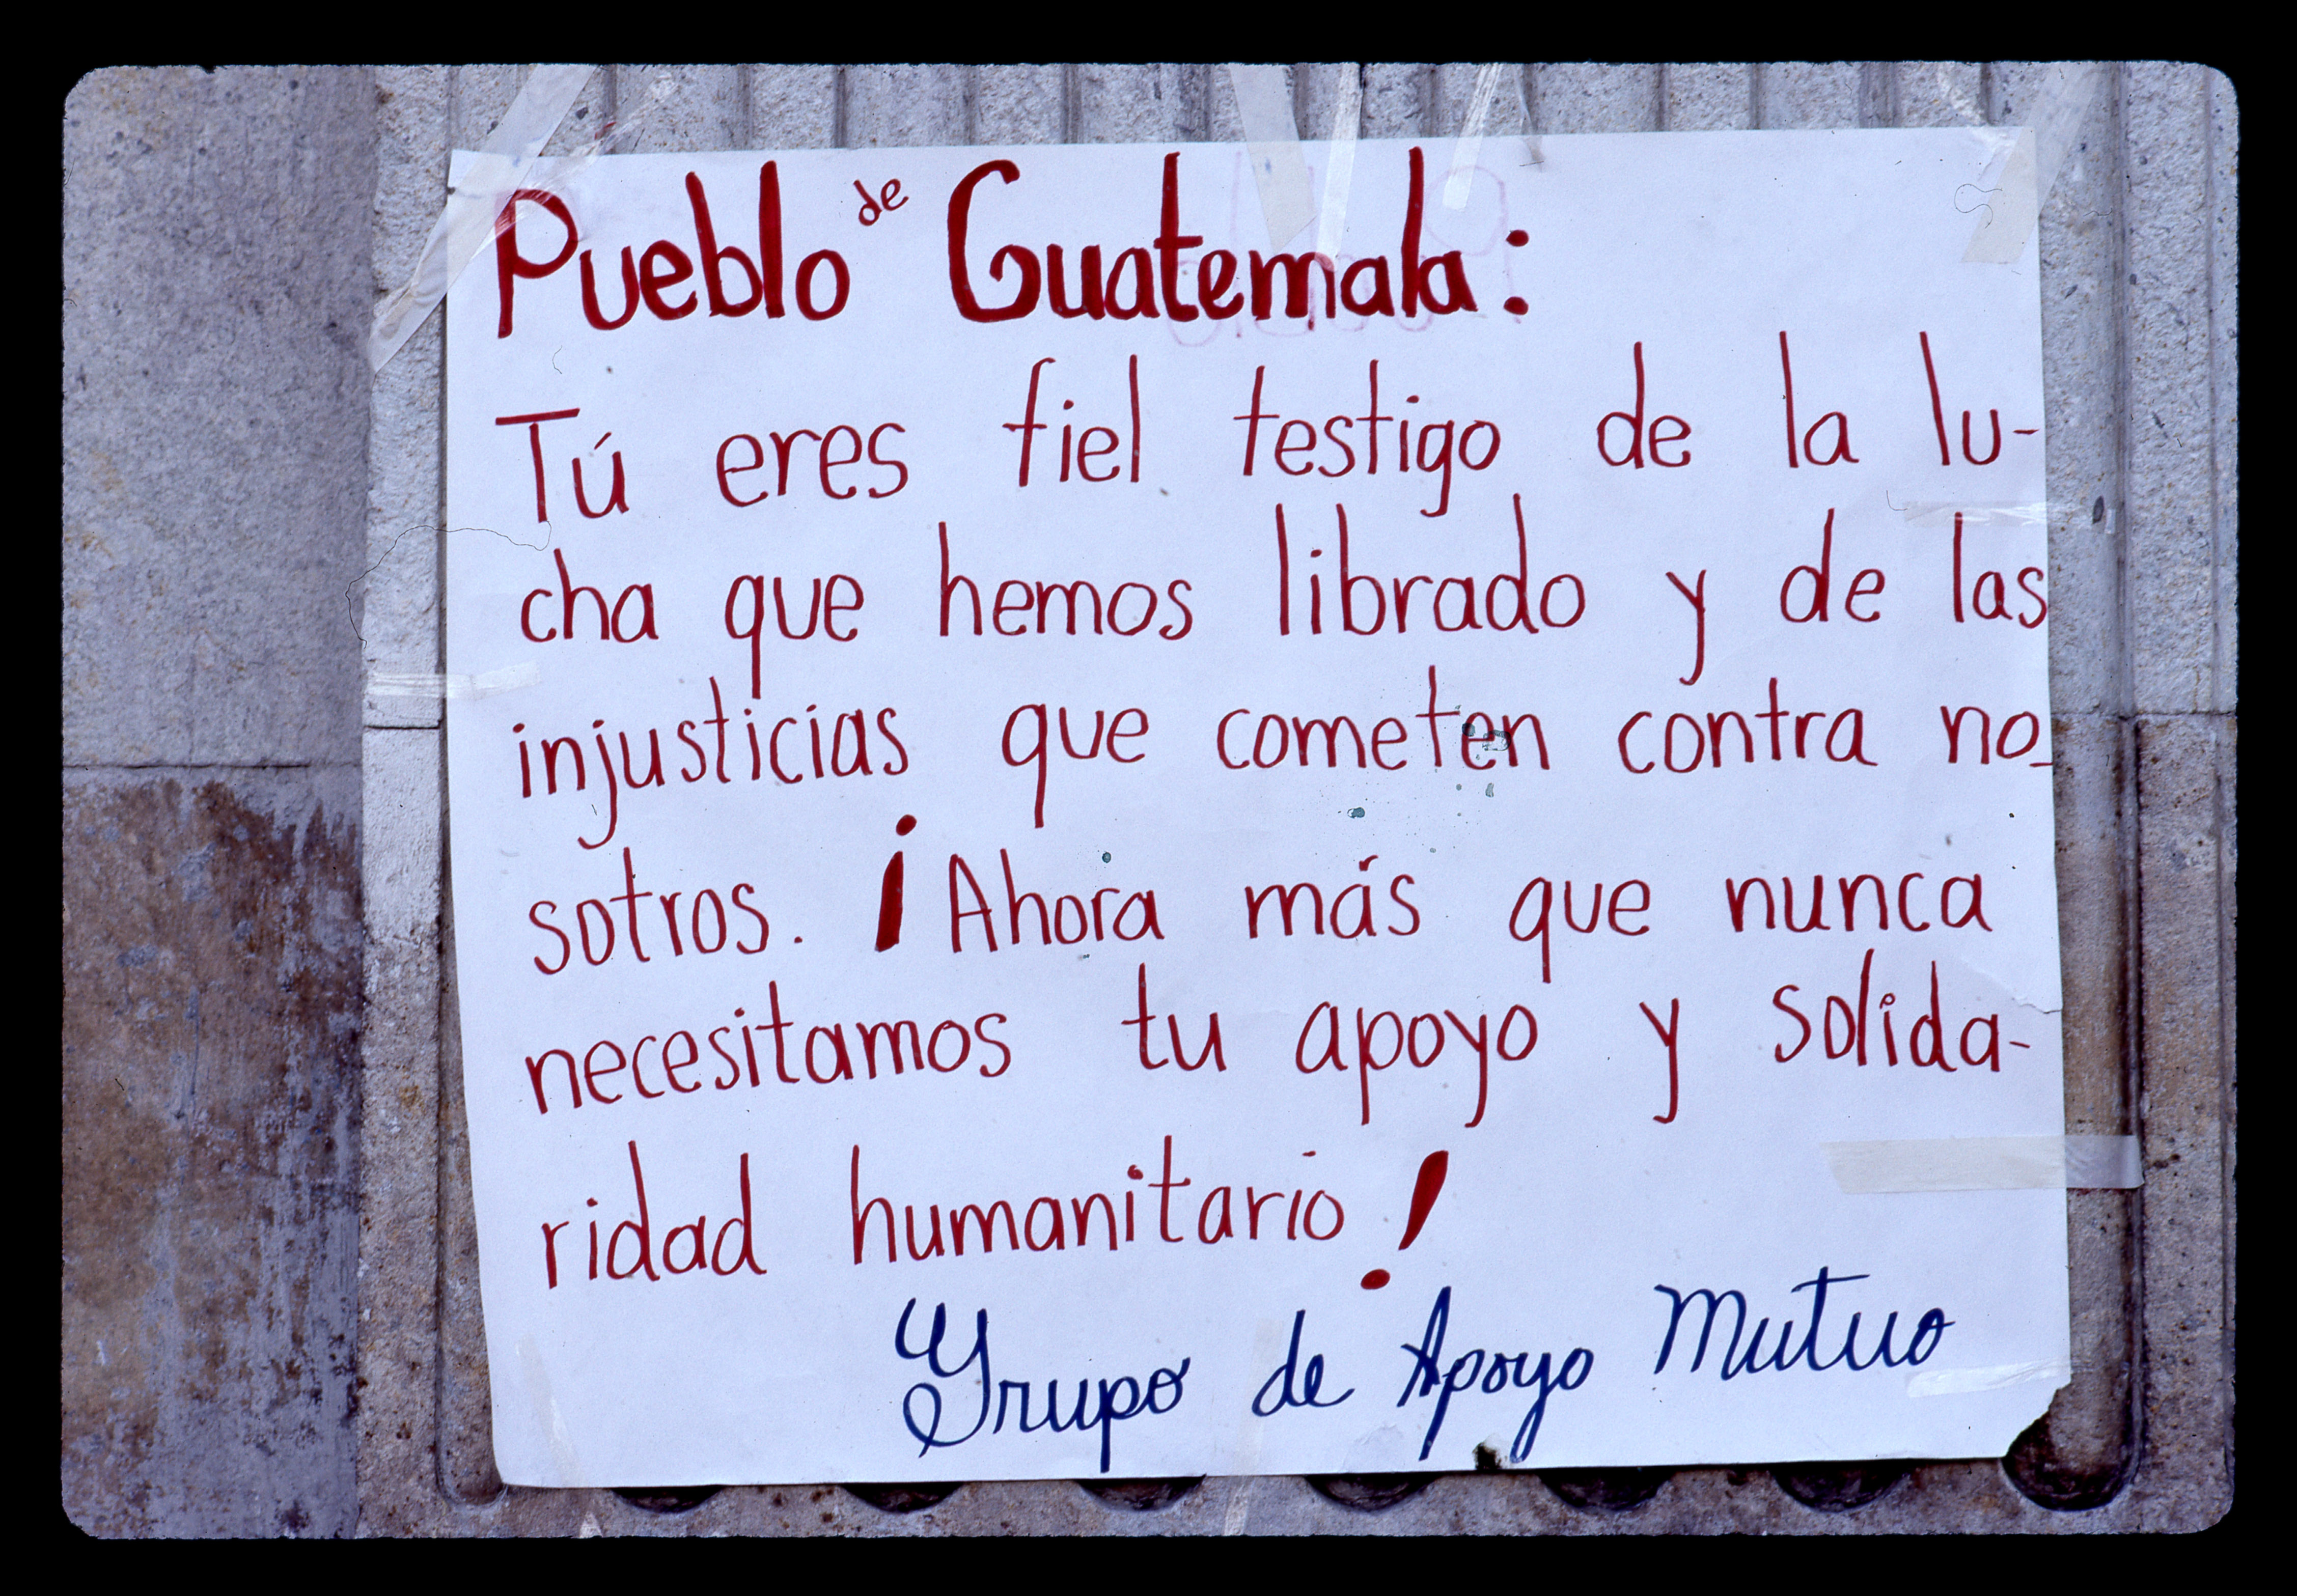 Pueblo de Guatemala:
Tú eres fiel testigo de la lu-
cha que hemos librado y de las
injusticias que cometen contra no-
sotros. ¡Ahora más que nunca
necesitamos tu apoyo y solida-
ridad humanitario!
Grupo de Apoyo Mutuo